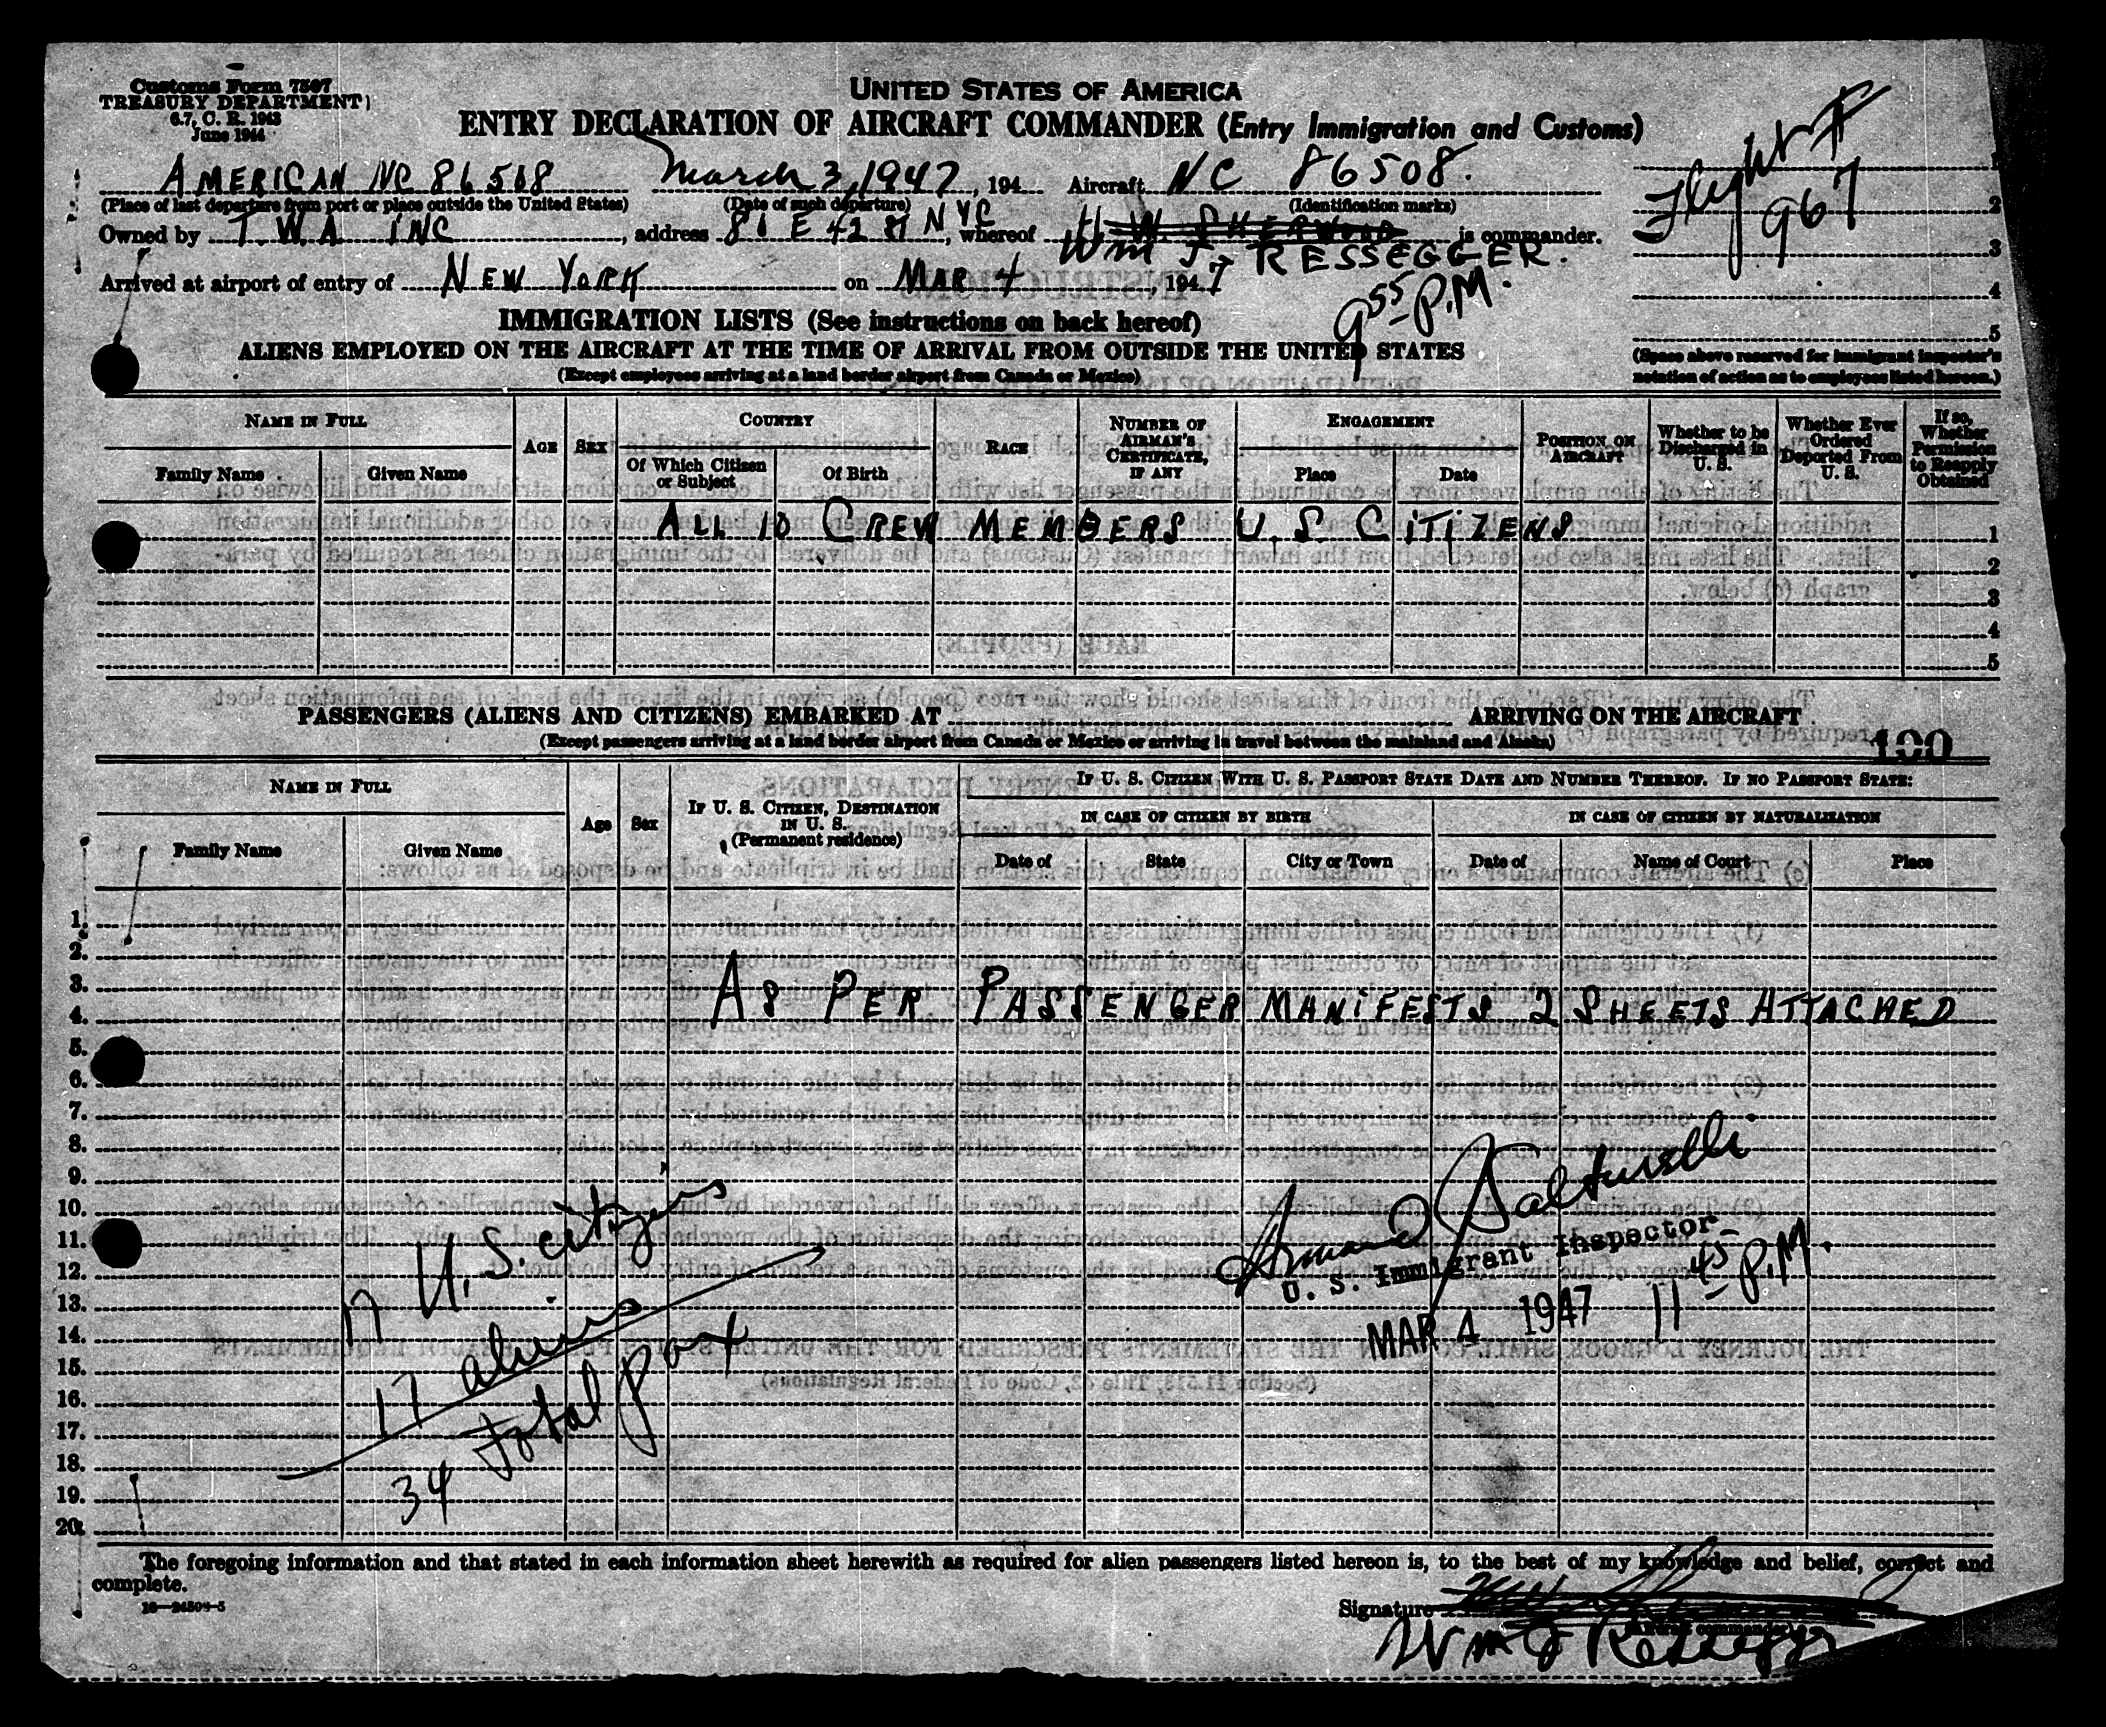 Customs Form 7507
TREASURY DEPARTMENT
6.7, C. R. 1943
June 1944
UNITED STATES OF AMERICA
ENTRY DECLARATION OF AIRCRAFT COMMANDER (Entry Immigration and Customs)
Flight #
967
AMERICAN NC 86508 March 3, 1947, 194 Aircraft NC 86508.
(Place of last departure from port or place outside the United States) (Date of such departure) (Identification marks)
Owned by T.W.A. INC, address 80 E 42 St NYC, whereof H. W. SHERWOOD is commander.
Wm J. RESSEGGER.
Arrived at airport of entry of NEW YORK on MAR 4, 1947
9 55 P.M.
1
2
3
4
5
(Space above reserved for immigrant inspector's notation of action as to employees listed hereon.)
IMMIGRATION LISTS (See instructions on back hereof)
ALIENS EMPLOYED ON THE AIRCRAFT AT THE TIME OF ARRIVAL FROM OUTSIDE THE UNITED STATES
(Except employees arriving at a land border airport from Canada or Mexico)
NAME IN FULL
Family Name
Given Name
AGE
SEX
COUNTRY
Of Which Citizen or Subject
Of Birth
RACE
NUMBER OF AIRMAN'S CERTIFICATE, IF ANY
ENGAGEMENT
Place
Date
POSITION ON AIRCRAFT
Whether to be Discharged in U. S.
Whether Ever Ordered Deported From U. S.
If so, Whether Permission to Reapply Obtained
ALL 10 CREW MEMBERS U.S. CITIZENS
1
2
3
4
5
PASSENGERS (ALIENS AND CITIZENS) EMBARKED AT ARRIVING ON THE AIRCRAFT
(Except passengers arriving at a land border airport from Canada or Mexico or arriving in travel between the mainland and Alaska)
100
NAME IN FULL
Family Name
Given Name
Age
Sex
IF U. S. CITIZEN, DESTINATION IN U. S.
(Permanent residence)
IF U. S. CITIZEN WITH U. S. PASSPORT STATE DATE AND NUMBER THEREOF. IF NO PASSPORT STATE:
IN CASE OF CITIZEN BY BIRTH
IN CASE OF CITIZEN BY NATURALIZATION
Date of
State
City or Town
Date of
Name of Court
Place
1.
2.
3.
4.
AS PER PASSENGER MANIFESTS 2 SHEETS ATTACHED
5.
6.
7.
8.
9.
10.
11.
12.
13.
14.
15.
16.
17.
18.
19.
20.
17 U.S. citizens
17 aliens
34 total pax
Armand
U. S. Immigrant Inspector
MAR 4 1947 11 45 P.M.
The foregoing information and that stated in each information sheet herewith as required for alien passengers listed hereon is, to the best of my knowledge and belief, correct and
complete.
16—24504-5
Signature
(Aircraft commander)
Wm J Ressegger